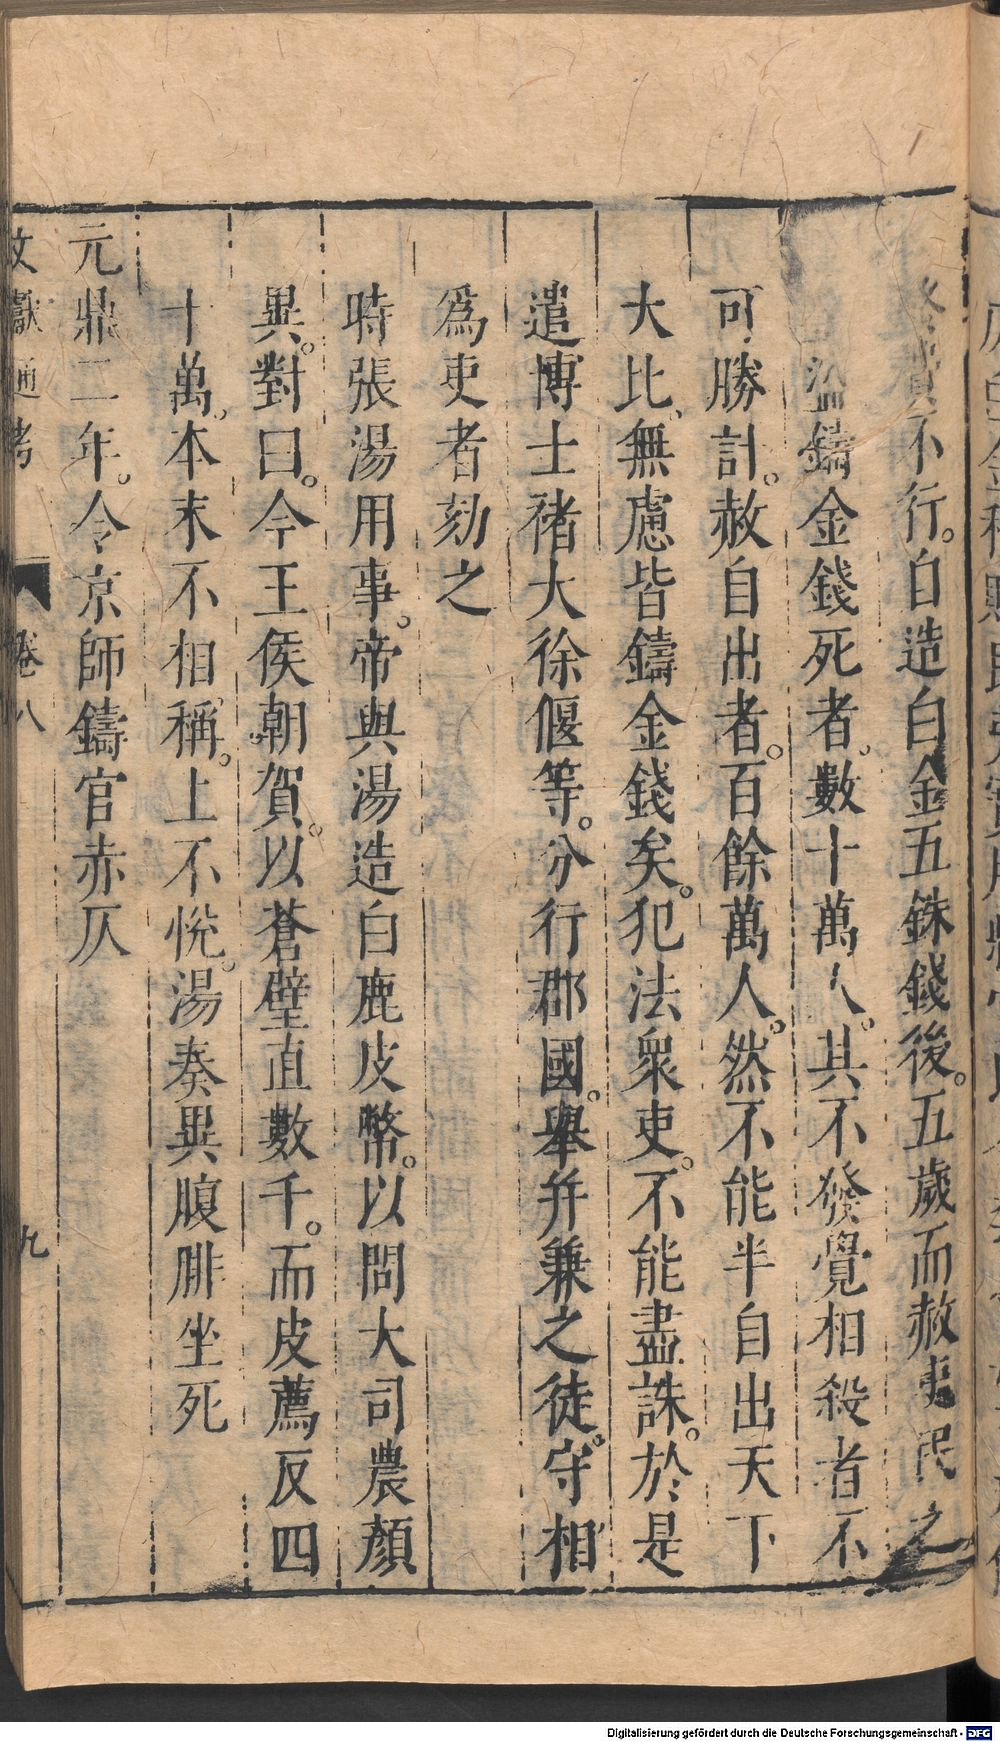 不行。自造白金五銖錢後。五歲而赦吏民之
盜鑄金錢死者。數十萬人。其不發覺相殺者不
可勝計。赦自出者。百餘萬人。然不能半自出天下
大比。無慮皆鑄金錢矣。犯法衆吏。不能盡誅。於是
遣博士禇大徐偃等。分行郡國。舉并兼之徒。守相
為吏者劾之
時張湯用事。帝與湯造白鹿皮幣。以問大司農顏
異。對曰。今王侯朝賀。以蒼璧直數千。而皮薦反四
十萬。本末不相稱。上不悅。湯奏異腹腓坐死
元鼎二年。令京師鑄官赤仄
文獻通考 卷八 九
Digitalisierung gefördert durch die Deutsche Forschungsgemeinschaft - DFG